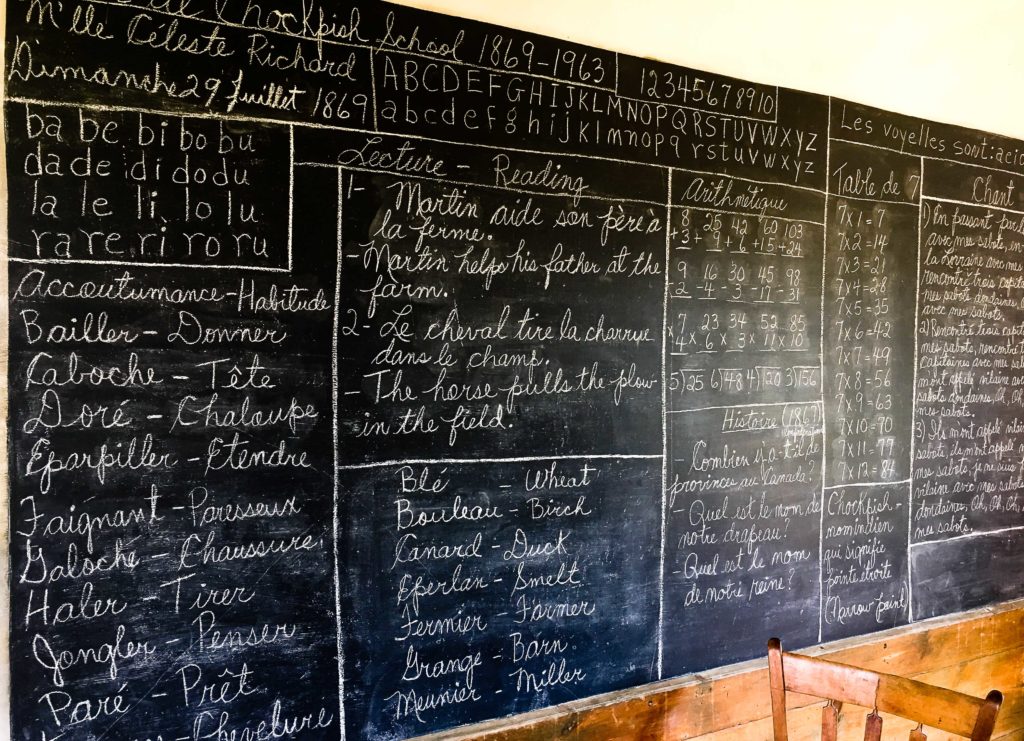 Chockpish School 1869-1963
M'lle Céleste Richard
Dimanche 29 Juillet 1869
ABCDEFGHIJKLMNOPQRSTUVWXYZ
abcdefghijklmnopqrstuvwxyz
12345678910
Les voyelles sont:
ba be bi bo bu
da de di do du
la le li lo lu
ra re ri ro ru
Accoutumance-Habitude
Bailler-Donner
Caboche-Tête
Doré-Chaloupe
Éparpiller-Étendre
Faignant-Paresseux
Galoche-Chaussure
Haler-Tirer
Jongler-Penser
Paré-Prêt
Chevelure
Lecture-Reading
1- Martin aide son père à
la ferme.
-Martin helps his father at the
farm.
2- Le cheval tire la charrue
dans le champ.
-The horse pulls the plow
in the field.
Blé = Wheat
Bouleau-Birch
Canard-Duck
Eperlan-Smelt
Fermier-Farmer
Grange-Barn
Meunier-Miller
Arithmétique
8 25 42 60 103
+3 +9 +6 +15 +24
9 16 30 45 98
-2 -4 -3 -11 -31
7 23 34 52 85
x4 x6 x3 x11 x10
5)25 6)48 4)120 3)156
Histoire (1867)
-Combien y a-t-il de
provinces au Canada?
-Quel est le nom de
notre drapeau?
-Quel est le nom
de notre reine?
Table de 7
7x1=7
7x2=14
7x3=21
7x4=28
7x5=35
7x6=42
7x7=49
7x8=56
7x9=63
7x10=70
7x11=77
7x12=84
Chockpish-
nom indien
qui signifie
pointe étroite
(Narrow point)
Chant
1) En passant par
avec mes sabots, en
la Lorraine avec mes
rencontré trois
mes sabots dondaines,
avec mes sabots.
2) Rencontré trois
mes sabots, rencontré
capitaines avec mes
m'ont appelé vilaine
sabots dondaines, Oh, Oh,
mes sabots.
3) Ils m'ont appelé
sabots, ils m'ont appelé
mes sabots, je ne suis
vilaine avec mes sabots
dondaines, Oh, Oh, Oh,
mes sabots.